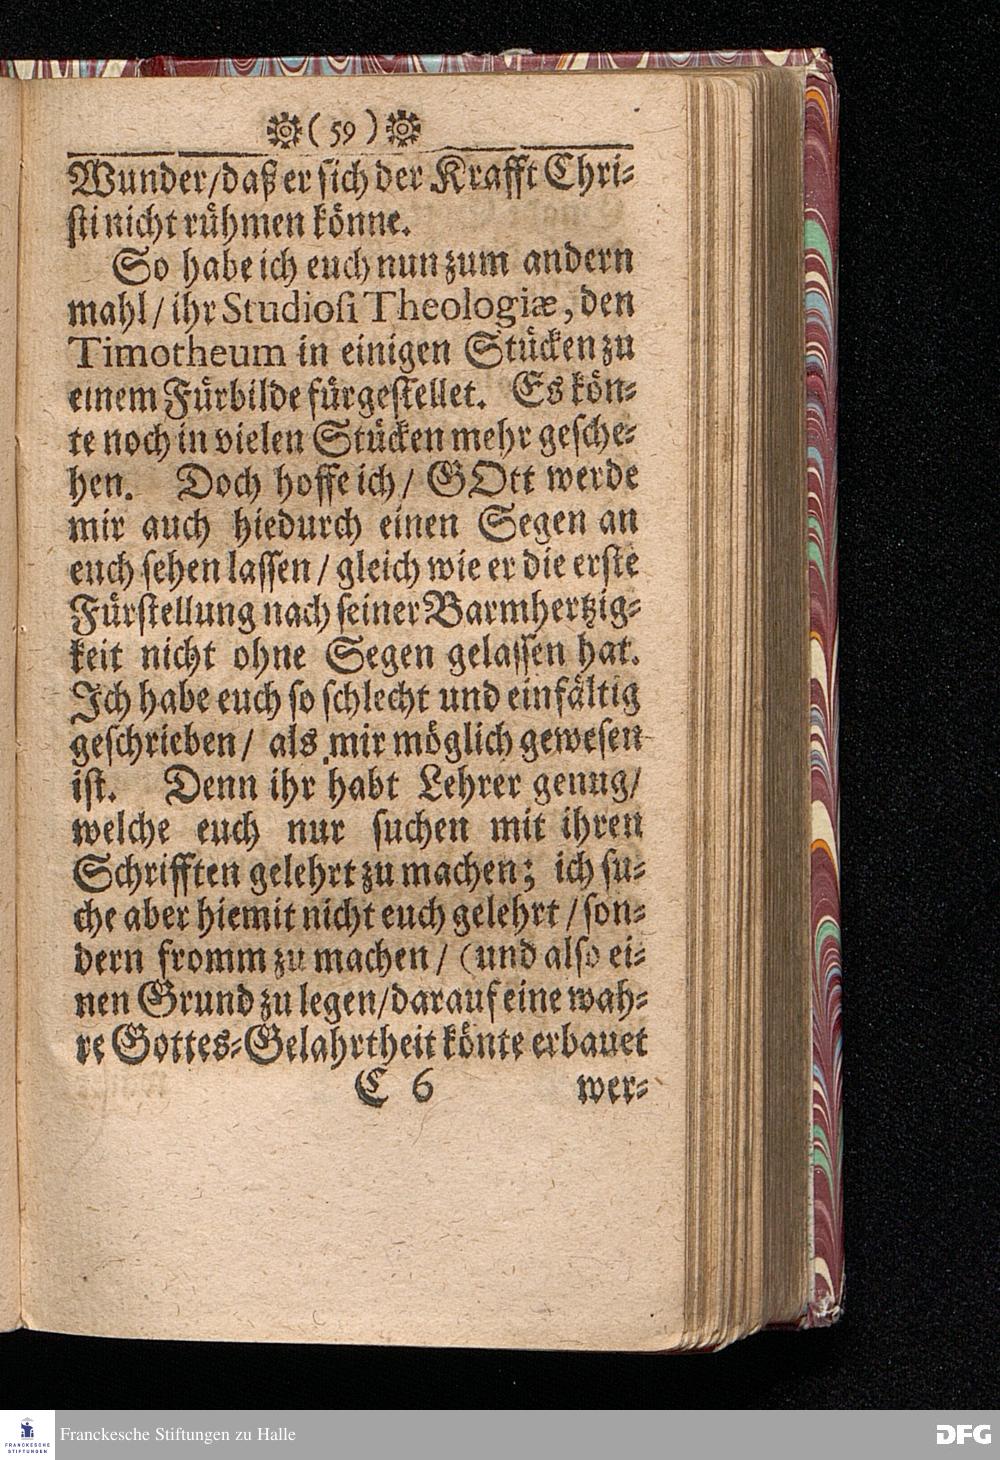 ( 59 )
Wunder/daß er sich der Krafft Chri-
sti nicht rühmen könne.
So habe ich euch nun zum andern
mahl/ ihr Studiosi Theologiæ, den
Timotheum in einigen Stücken zu
einem Fürbilde fürgestellet. Es kön-
te noch in vielen Stücken mehr gesche-
hen. Doch hoffe ich/ GOtt werde
mir auch hiedurch einen Segen an
euch sehen lassen/ gleich wie er die erste
Fürstellung nach seiner Barmhertzig-
keit nicht ohne Segen gelassen hat.
Ich habe euch so schlecht und einfältig
geschrieben/ als mir möglich gewesen
ist. Denn ihr habt Lehrer genug/
welche euch nur suchen mit ihren
Schrifften gelehrt zu machen; ich su-
che aber hiemit nicht euch gelehrt/son-
dern fromm zu machen/ (und also ei-
nen Grund zu legen/darauf eine wah-
re Gottes-Gelahrtheit könte erbauet
C 6 wer-
FRANCKESCHE
STIFTUNGEN
Franckesche Stiftungen zu Halle
DFG